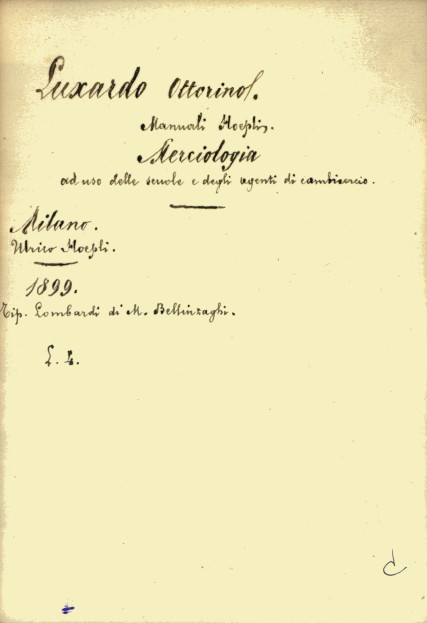 Luxardo Ottorino.
Manuali Hoepli.
Merciologia
ad uso delle scuole e degli agenti di
Milano.
Ulrico Hoepli.
1899.
Tip. Lombardi di M. Bellinzaghi.
L.